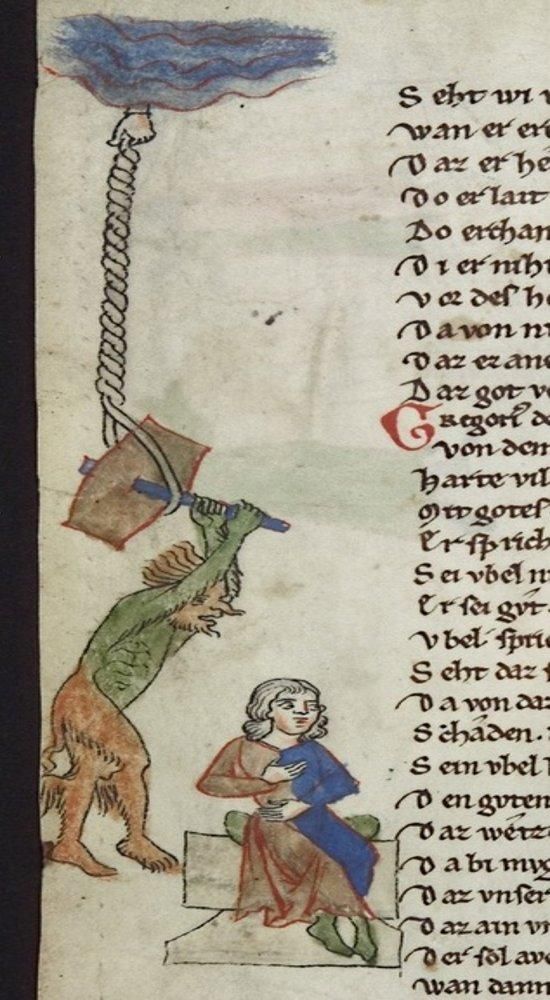 S eht wi
wan er ere
D az er he
D o er lait
D o erchan
D i er niht
v or des h
D a von
D az er ane
D az got v
Gregori de
von dem
harte vil
Mit gotes
Er sprich
S ei vbel
Er sei gvt.
V bel sprie
S eht daz s
D a von daz
Schaden.
S ein vbel
D en gvten
D az
D a bi mvg
D az vnser
D az ain v
D er sol ave
wan dann